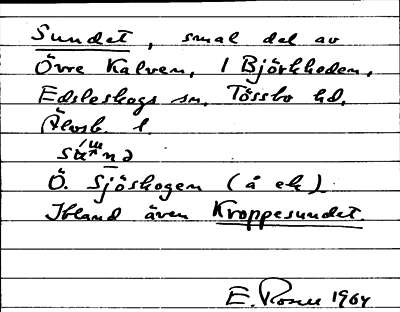 Sundet, smal del av
Övre Kalven, i Björkheden,
Edsleskogs sn. Tössbo hd.
Älvsb. l.
Ö. Sjöskogen (å ek)
Ibland även Kroppesundet.
E. Rosen 1964